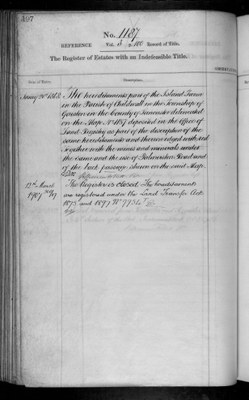 497
No. 1187
REFERENCE Vol. 3 p. 180 Record of Title.
The Register of Estates with an Indefeasible Title.
Date of Entry.
Description.
1868 The hereditaments part of the Island Farm
in the Parish of Childwall in the Township of
Garston in the County of Lancaster delineated
on the Map No 1187 deposited in the Office of
Land Registry as part of the description of the
same hereditaments and therein edged with red
together with the mines and minerals under
the same and the use of Road and
of the back passage shewn on the said Map.
17th March
1909
The Register is closed. The hereditaments
are registered under the Land Transfer Acts
1875 and 1897 No